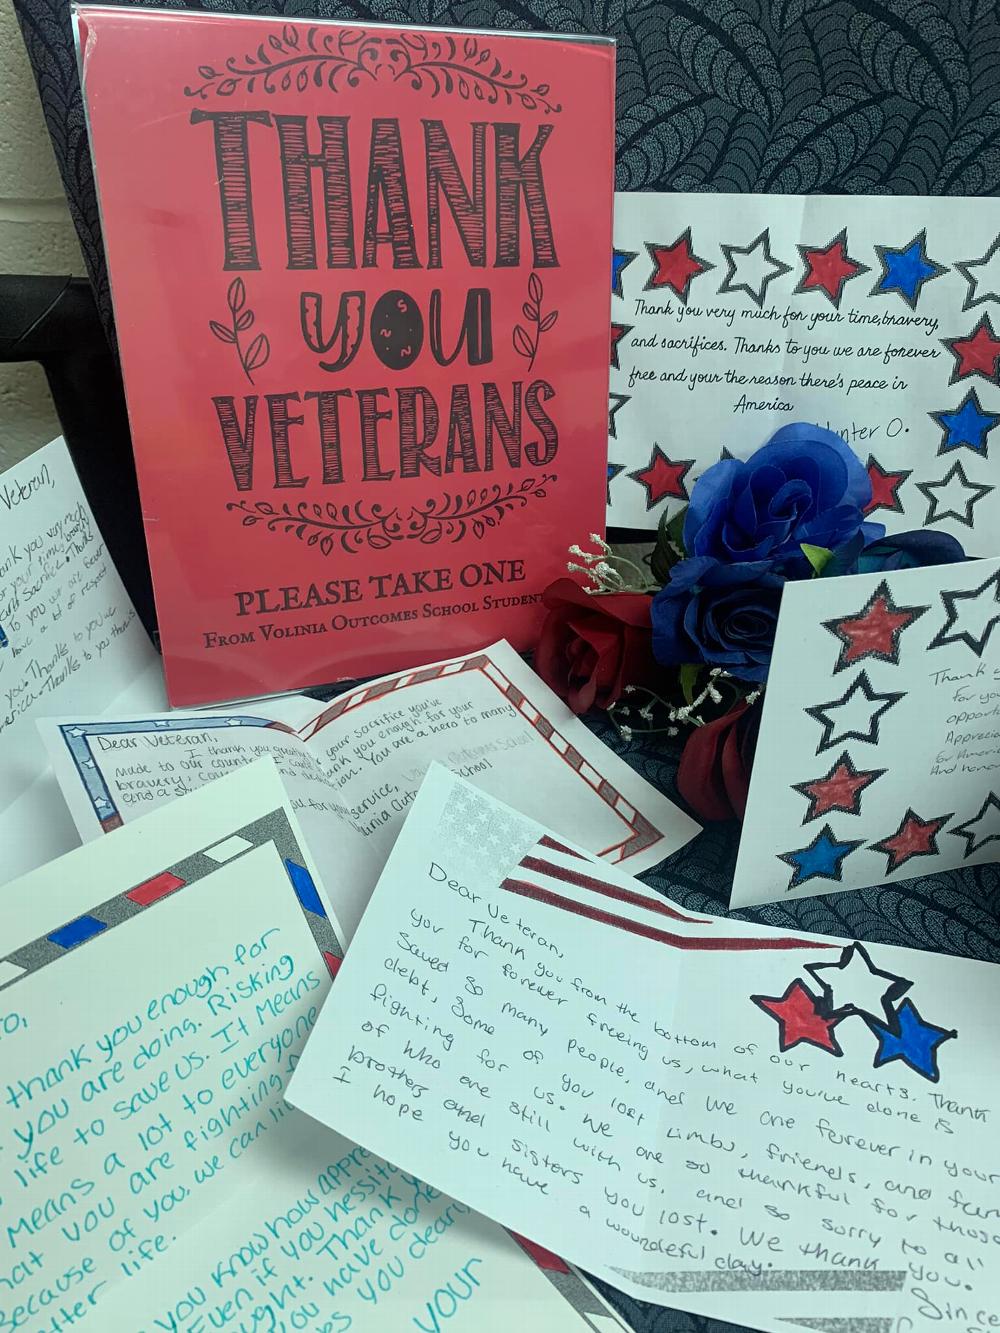 THANK
YOU
VETERANS
PLEASE TAKE ONE
FROM VOLINIA OUTCOMES SCHOOL STUDENT
Thank you very much for your time, bravery,
and sacrifices. Thanks to you we are forever
free and your the reason there's peace in
America
Hunter O.
Veteran,
you very much
your time, bravery
and sacrifice. Thanks
To you we are forever
have a lot of respect
you. Thanks to you
Thanks to you
Dear Veteran,
I thank you
your sacrifice you've
made to our
thank you enough for your
bravery,
You are a hero to many
and a
you for your service,
School
Thank
for you
Apprecia
for America
And honor
Dear Veteran,
Thank you from the bottom of our hearts. Thank
you for forever freeing us, what you've done is
saved so many people, and we are forever in your
debt, Some of you lost limbs, friends, and
fighting for us. We are so thankful for those
of who are still with us, and so sorry to all
brothers and sisters you lost. We thank you.
I hope you have a wounderful day.
Since
To,
thank you enough for
you are doing. Risking
life to save us. It Means
Means a lot to everyone
that you are fighting
Because of you, we can
life.
you know how
Even if you
Thank
you have done
you dearly
your